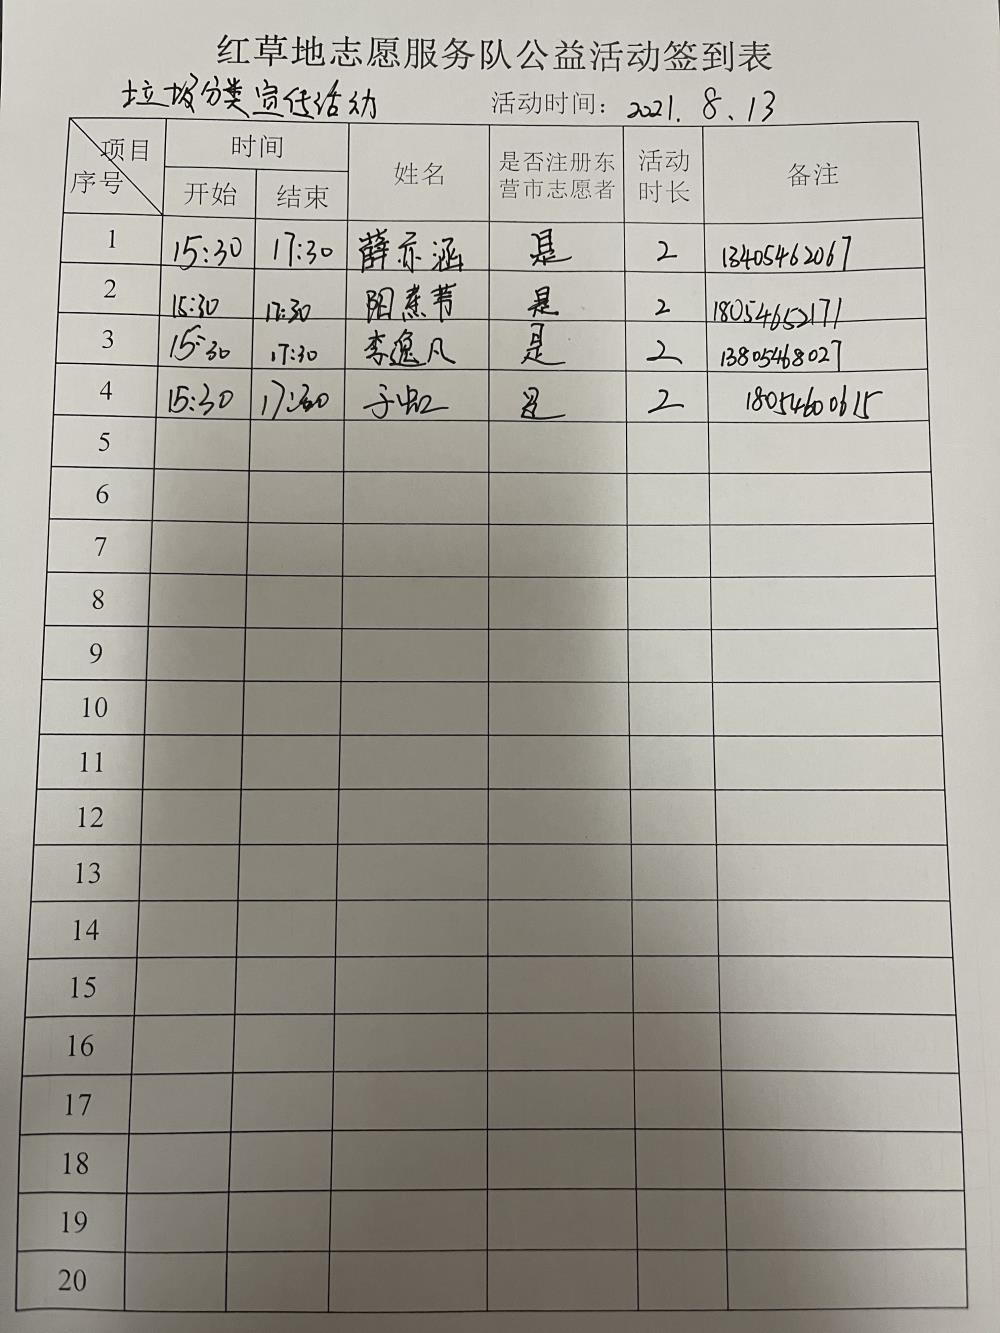 红草地志愿服务队公益活动签到表
垃圾分类宣传活动 活动时间：2021.8.13
项目 序号 时间 开始 结束 姓名 是否注册东营市志愿者 活动时长 备注
1 15:30 17:30 薛亦涵 是 2 13405462067
2 15:30 17:30 是 2 18054652171
3 15:30 17:30 李逸凡 是 2 13805468027
4 15:30 17:30 是 2 18054600615
5
6
7
8
9
10
11
12
13
14
15
16
17
18
19
20